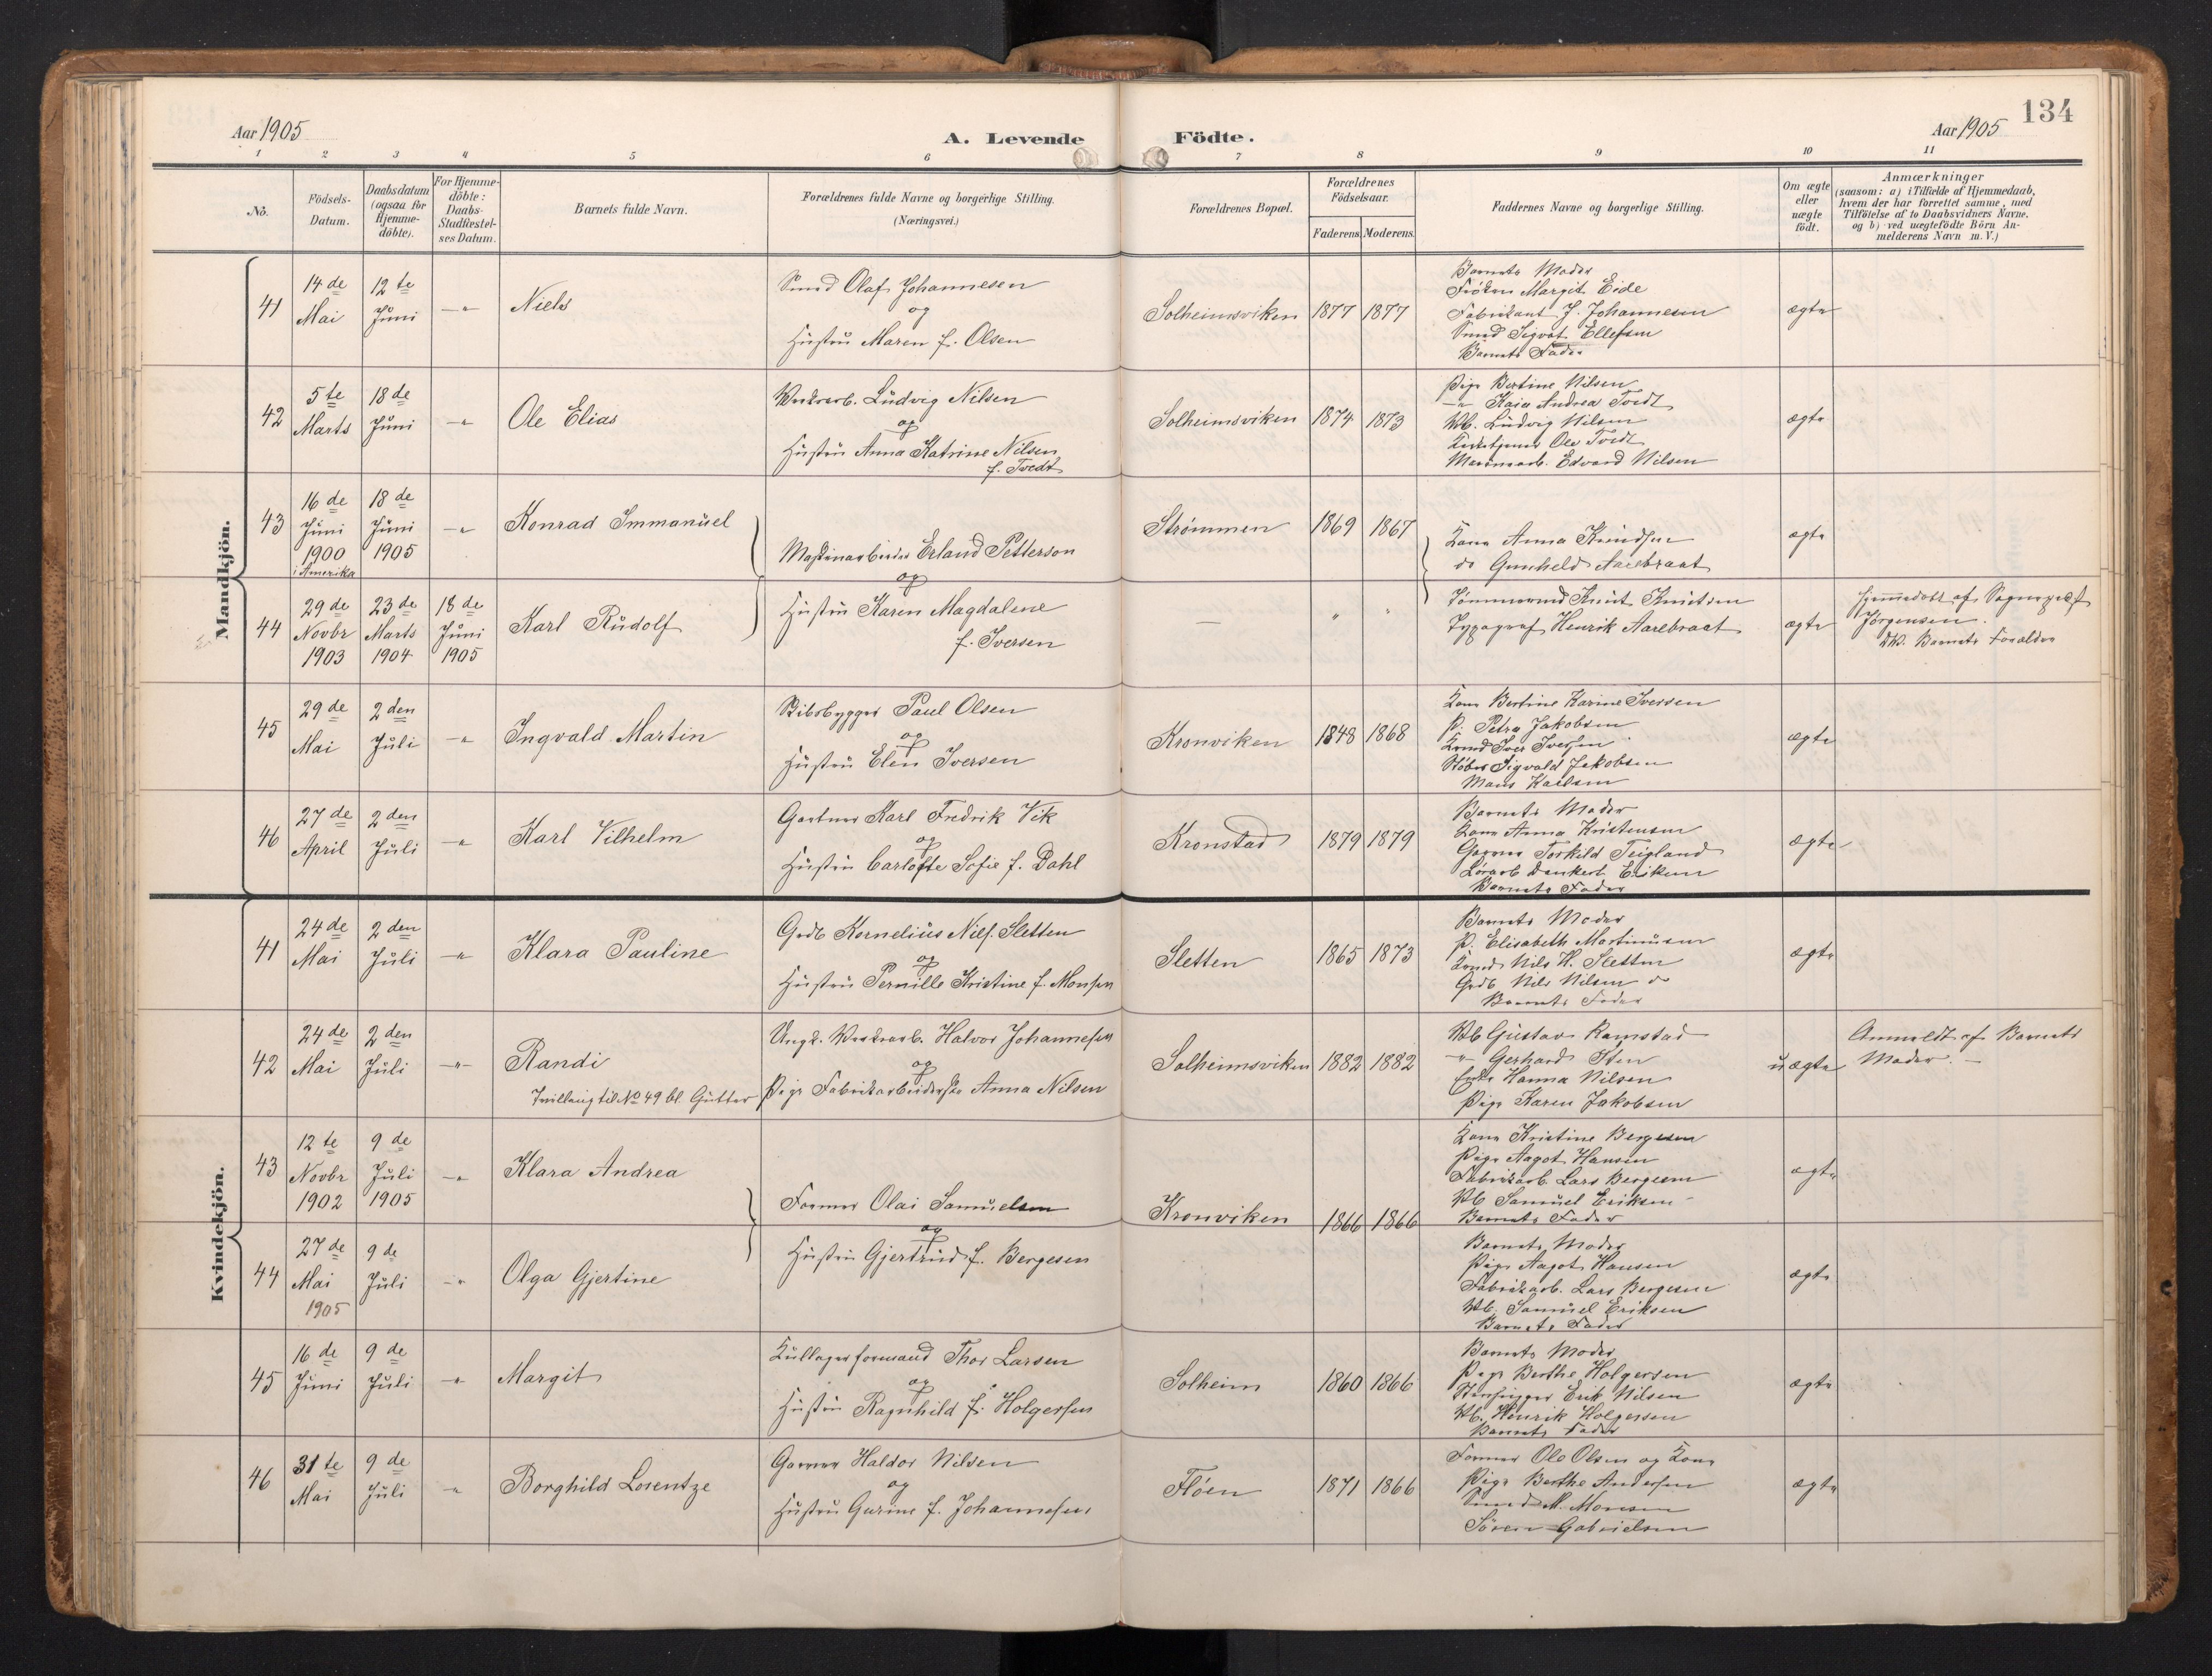 134
Aar 1905
A. Levende Födte.
Aar 1905
1 2 3 4 5 6 7 8 9 10 11
No.
Födsels-Datum.
Daabsdatum (ogsaa for Hjemme-döbte).
For Hjemme-döbte: Daabs-Stadfæstel-ses Datum.
Barnets fulde Navn.
Forældrenes fulde Navne og borgerlige Stilling.
(Næringsvei.)
Forældrenes Bopæl.
Forældrenes Födselsaar.
Faderens. Moderens.
Faddernes Navne og borgerlige Stilling.
Om ægte eller uægte födt.
Anmærkninger
(saasom: a) i Tilfælde af Hjemmedaab, hvem der har forrettet samme, med Tilföielse af to Daabsvidners Navne, og b) ved uægtefödte Börn An-melderens Navn m.V.)
Mandkjön.
41 14de Mai 12te Juni —"— Niels
Smed Olaf Johannesen
og
Hustru Maren f. Olsen
Solheimsviken 1877 1877
Barnets Moder
Frøken Margit Eide
Fabrikant J. Johannesen
Smed Sigvat Ellefsen
Barnets Fader
ægte
42 5te Marts 18de Juni —"— Ole Elias
Verksarb. Ludvig Nilsen
og
Hustru Anna Katrine Nilsen
f. Tvedt
Solheimsviken 1874 1873
Pige Bertine Nilsen
—"— Kaia Andrea Tvedt
Vb. Ludvig Nilsen
Ole Tvedt
Edvard Nilsen
ægte
43 16de Juni 1900 i Amerika 18de Juni 1905 —"— Konrad Immanuel
Maskinarbeider Erland Petterson
og
Hustru Karen Magdalene
f. Iversen
Strømmen 1869 1867
Kone Anna Knudsen
do Gunhild Aarebraat
ægte
44 29de Novbr 1903 23de Marts 1904 18de Juni 1905 Karl Rudolf
— " "
Tømmermd Knut Knutsen
Typograf Henrik Aarebraat
ægte
Hjemmedøbt af Sognepræst
Jørgensen.
DV. Barnets Forældre
45 29de Mai 2den Juli —"— Ingvald Martin
Skibsbygger Paul Olsen
og
Hustru Elen Iversen
Kronviken 1848 1868
Kone Bertine Karine Iversen
P. Petra Jakobsen
Iver Iversen
Støber Sigvald Jakobsen
Mons Karlsen
ægte
46 27de April 2den Juli —"— Karl Vilhelm
Gartner Karl Fredrik Vik
og
Hustru Carlotte Sofie f. Dahl
Kronstad 1879 1879
Barnets Moder
Kone Anna Kristensen
Garver Torkild Teigland
Dankert Eriksen
Barnets Fader
ægte
Kvindekjön.
41 24de Mai 2den Juli —"— Klara Pauline
Grdb Kornelius Nils. Sletten
og
Hustru Pernille Kristine f. Monsen
Sletten 1865 1873
Barnets Moder
P. Elisabeth Martinusen
Nils H. Sletten
Grdb Nils Nilsen do
Barnets Fader
ægte
42 24de Mai 2den Juli —"— Randi
Tvilling til No 49 bl. Gutter
Ungk. Verksarb. Halvor Johannesen
og
Pige Fabrikarbeiderske Anna Nilsen
Solheimsviken 1882 1882
Vb Gustav Ramstad
—"— Gerhard Sten
Enke Hanna Nilsen
Pige Karen Jakobsen
uægte
Anmeldt af Barnets
Moder. —
43 12te Novbr 1902 9de Juli 1905 —"— Klara Andrea
Former Olai Samuelsen
og
Hustru Gjertrud f. Bergesen
Kronviken 1866 1866
Kone Kristine Bergesen
Pige Aagot Hansen
Fabrikarb. Lars Bergesen
Vb Samuel Eriksen
Barnets Fader
ægte
44 27de Mai 1905 9de Juli —"— Olga Gjertine
Barnets Moder
Pige Aagot Hansen
Fabrikarb. Lars Bergesen
Vb. Samuel Eriksen
Barnets Fader
ægte
45 16de Juni 9de Juli —"— Margit
Kullagerformand Thor Larsen
og
Hustru Ragnhild f. Holgersen
Solheim 1860 1866
Barnets Moder
Pige Berthe Holgersen
Erik Nilsen
Vb. Henrik Holgersen
Barnets Fader
ægte
46 31te Mai 9de Juli —"— Borghild Lorentze
Garver Haldor Nilsen
og
Hustru Gurine f. Johannesen
Fløen 1871 1866
Former Ole Olsen og Kone
Pige Berthe Andersen
Smed M. Monsen
Søren Gabrielsen
ægte